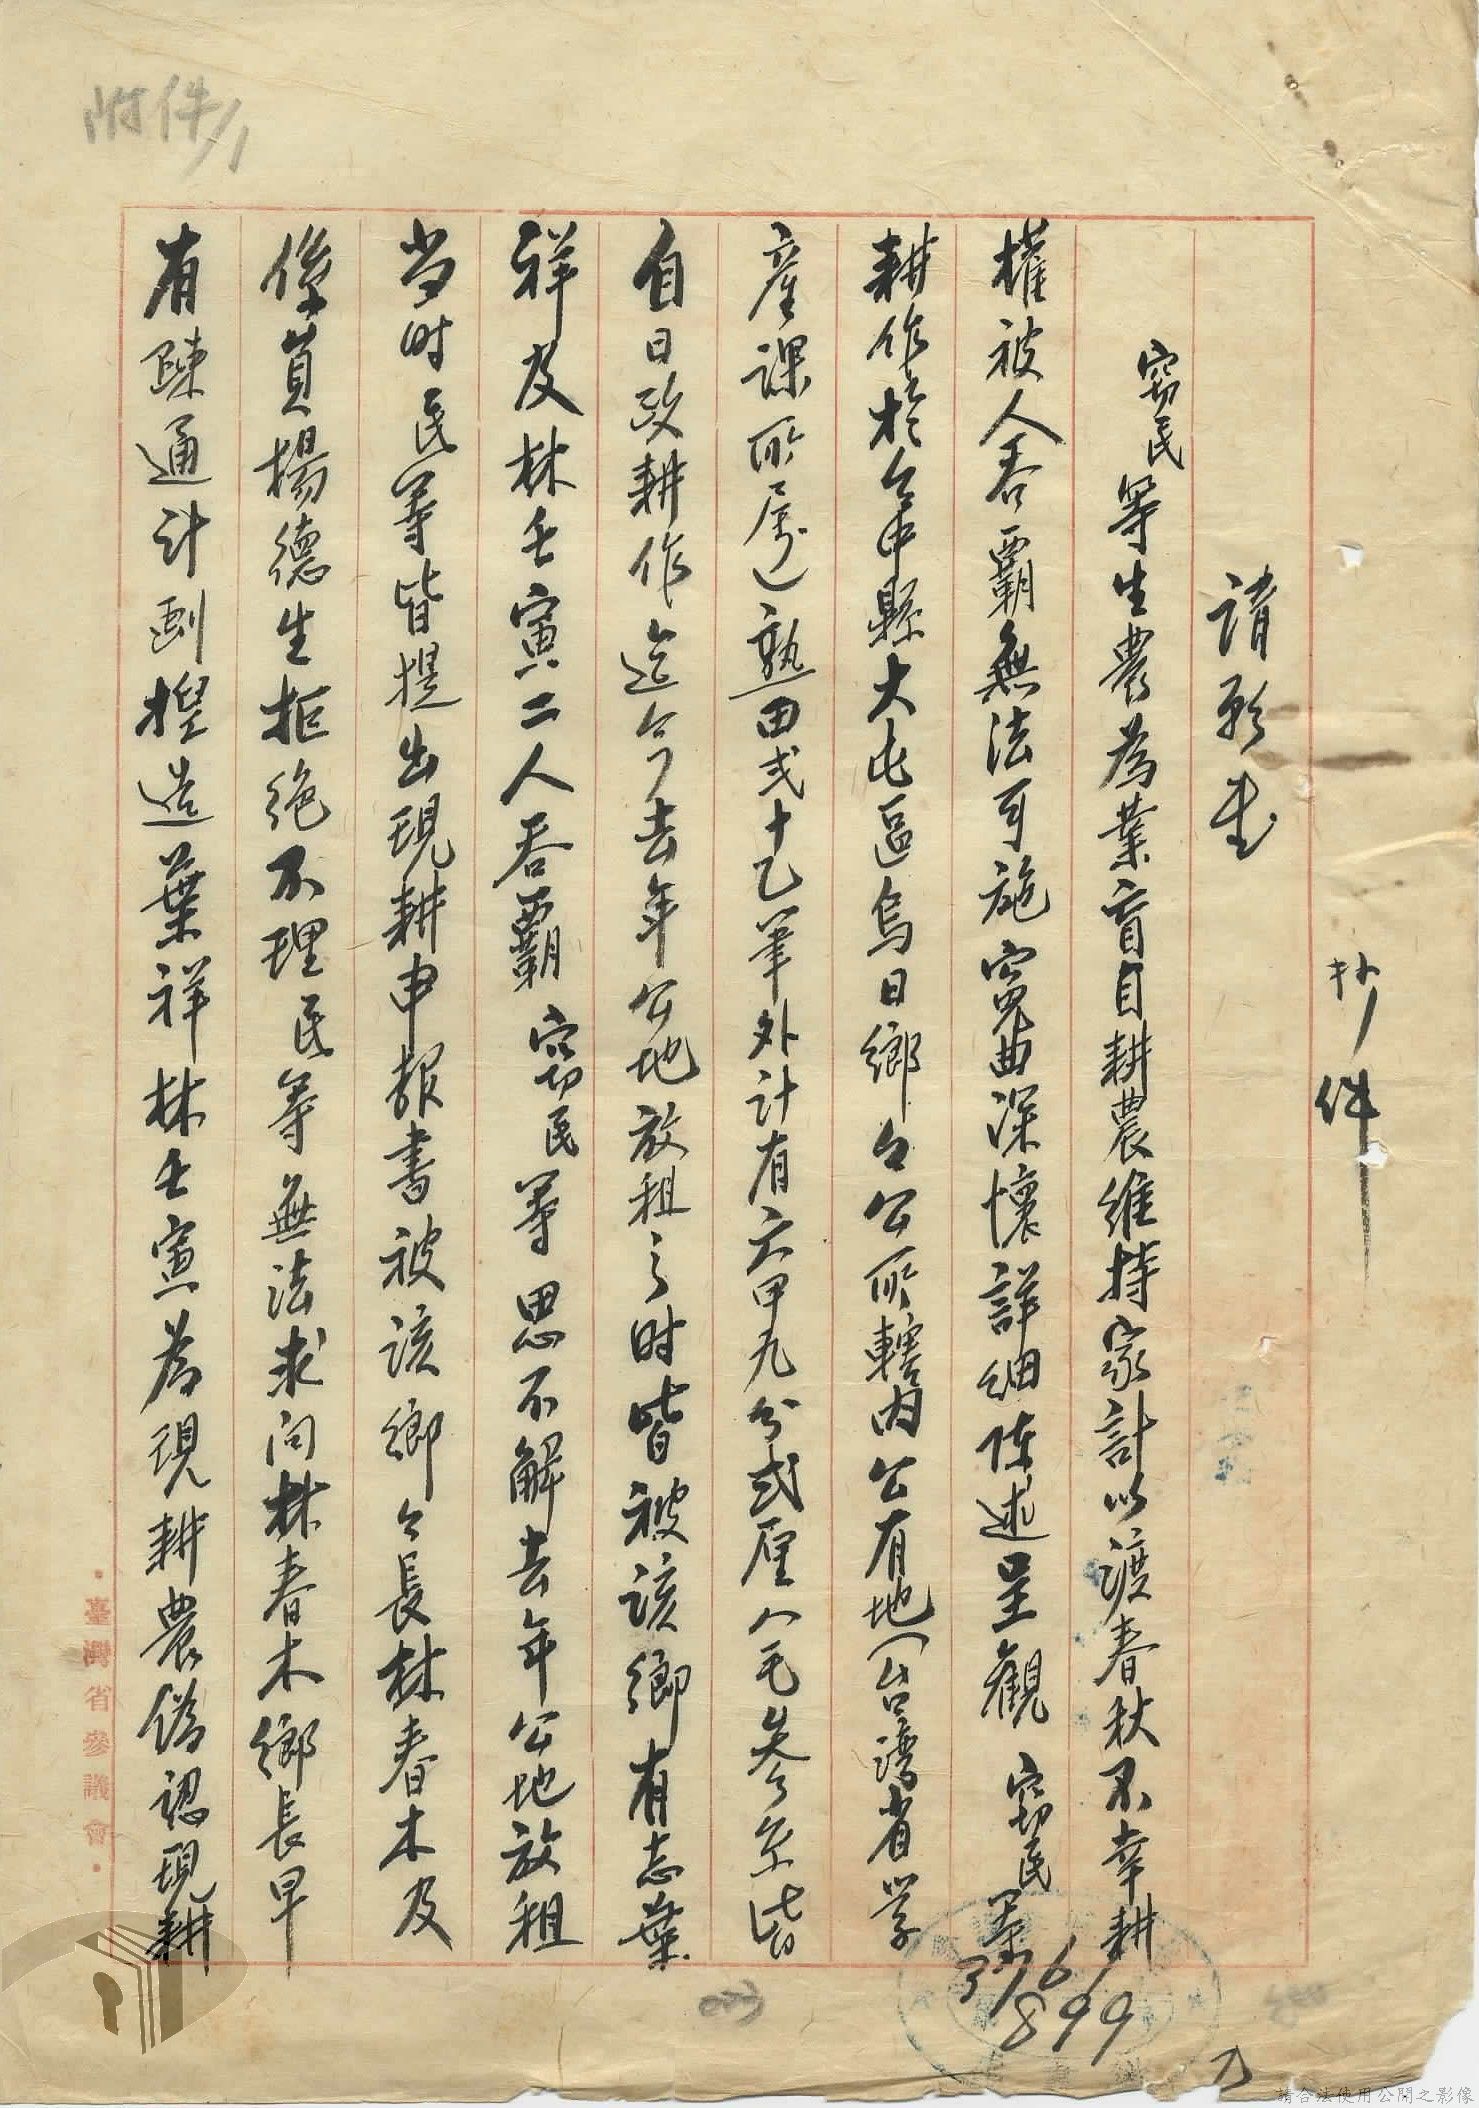 附件1
抄件
請願書
竊民等生農為業盲目耕農維持家計以渡春秋不幸耕
權被人吞霸無法可施寃曲深懷詳細陳述呈觀竊民等
耕作於台中縣大屯區烏日鄉公所轄內公有地(台灣省学
產課所屬)熟田弍十乙筆外計有六甲九分弍厘八毛參糸皆
自日政耕作迄今去年公地放租之时皆被該鄉有志葉
祥及林壬寅二人吞霸竊民等思不解去年公地放租
当时民等皆提出現耕申報書被該鄉々長林春木及
係員楊德生拒绝不理民等無法求问林春木鄉長早
有踈通計劃捏造葉祥林壬寅為現耕農偽認現耕
臺灣省參議會
316
899
請合法使用公開之影像